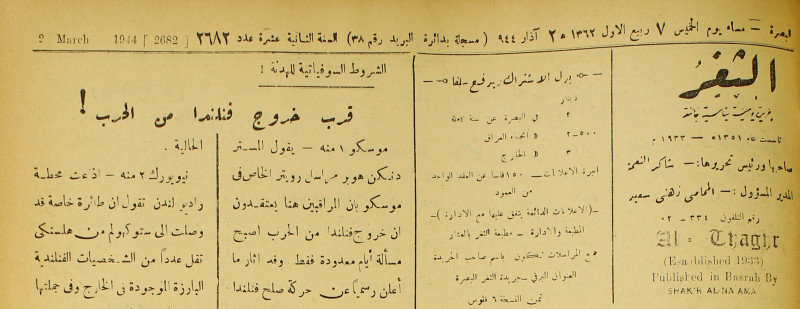 البصرة — مساء يوم الخميس ٧ ربيع الاول ١٣٦٢ ٢٥ آذار ٩٤٤ ( مسجلة بدائرة البريد رقم ٣٨ ) السنة الثانية عشرة عدد ٢٦٨٢ [ 2682 ] 1944 March 2
الثغر
تأسست ١٣٥١ هـ — ١٩٣٣ م
صاحبها ورئيس تحريرها :— شاكر النعمة
المدير المسؤول :— المحامي زهني سعيد
رقم التلفون ٣٣٤ — ٠٢
Al - Thaghr
(Established 1933)
Published in Basrah By
SHAKIR AL-NAAMA
بدل الاشتراك يدفع سلفا
دينار
٢ في البصرة عن سنة كاملة
٢—٥٠٠ « انحاء العراق
٣ « الخارج
اجرة الاعلانات — ١٥٠ فلسا عن العقد الواحد
من العمود
—( الاعلانات الدائمة يتفق عليها مع الادارة )—
المطبعة والادارة — مطبعة الثغر بالعشار
جميع المراسلات تكون باسم صاحب الجريدة
العنوان البرقي — جريدة الثغر البصرة
ثمن النسخة ٦ فلوس
الشروط السوفياتية للهدنة !
قرب خروج فنلندا من الحرب !
موسكو ١ منه — يقول المستر
دنكن هوبر مراسل رويتر الخاص في
موسكو بان المراقبين هنا يعتقدون
ان خروج فنلندا من الحرب اصبح
مسألة أيام معدودة فقط وقد اثار ما
أعلن رسمياً عن حركة صلح فنلندا
الحالية .
نيويورك ٢ منه — اذعت محطة
راديو لندن تقول ان طائرة خاصة قد
وصلت الى ستوكهولم من هلسنكي
تقل عدداً من الشخصيات الفنلندية
البارزة الموجودة في الخارج وفي جملتها